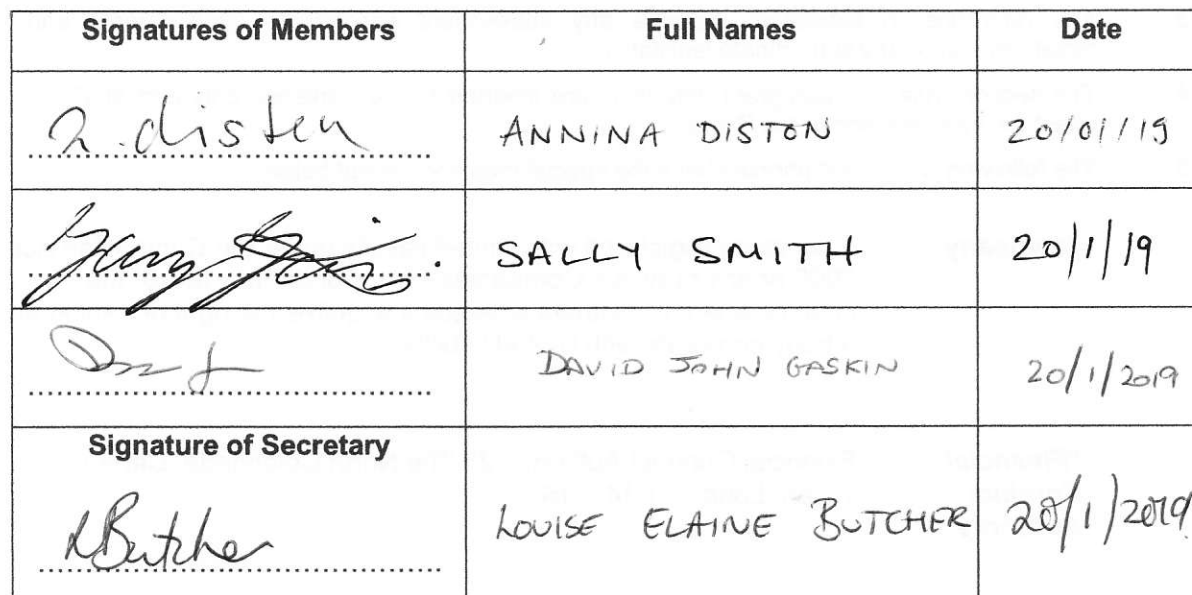 Signatures of Members Full Names Date
a. disten ANNINA DISTON 20/01/19
SALLY SMITH 20/1/19
DAVID JOHN GASKIN 20/1/2019
Signature of Secretary
LButcher LOUISE ELAINE BUTCHER 20/1/2019